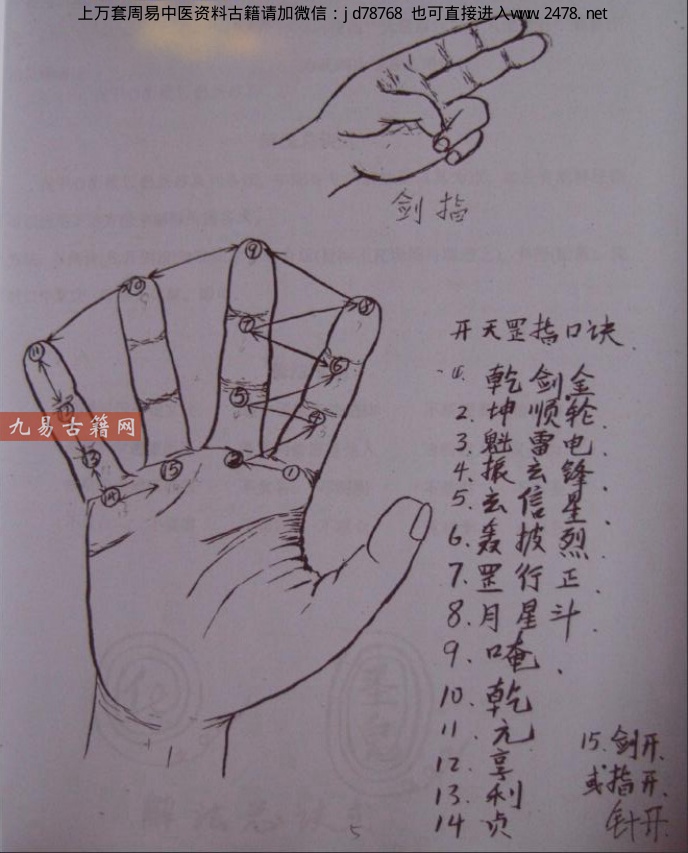 上万套周易中医资料古籍请加微信：jd78768 也可直接进入www.2478.net
剑指
九易古籍网
9
10
8
11
7
6
5
4
13
15
2
1
14
开天罡指口诀
1. 乾剑金
2. 坤顺轮
3. 魁雷电
4. 振玄锋
5. 玄信星
6. 轰披烈
7. 罡行正
8. 月星斗
9. 唵
10. 乾
11. 元
12. 享
13. 利
14 贞
15. 剑开
或指开
针开
5